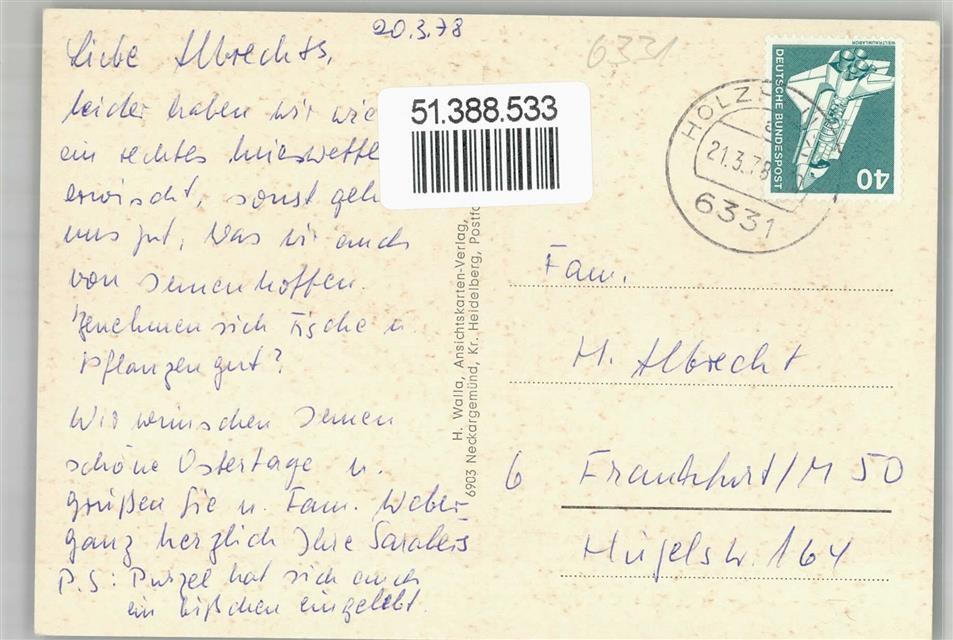 20.3.78
6331
Liebe Albrechts,
leider haben wir wie
ein rechtes Mieswette
erwischt, sonst geh
uns gut, was wir auch
von Ihnen hoffen.
Benehmen sich Fische u.
Pflanzen gut?
Wir wünschen Ihnen
schöne Ostertage u.
grüßen Sie u. Fam. Weber
ganz herzlich Ihre
P.S: Purzel hat sich auch
ein bißchen eingelebt.
51.388.533
H. Walla, Ansichtskarten-Verlag,
6903 Neckargemünd, Kr. Heidelberg, Postf
HOLZ
21.3.78
6331
WELTRAUMLABOR
DEUTSCHE BUNDESPOST
40
Fam.
H. Albrecht
6 Frankfurt/M 50
Hügelstr. 164